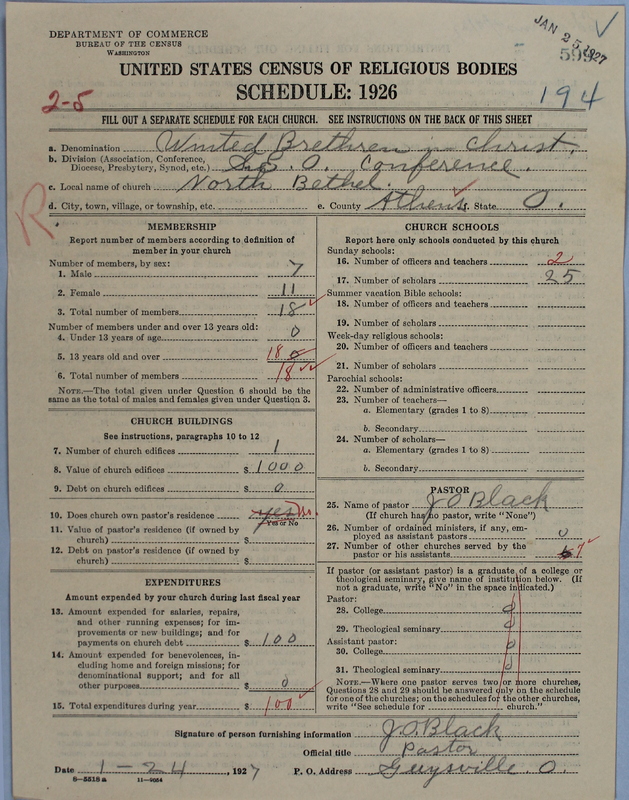 DEPARTMENT OF COMMERCE
BUREAU OF THE CENSUS
WASHINGTON
JAN 25 1927
UNITED STATES CENSUS OF RELIGIOUS BODIES
SCHEDULE: 1926
2-5
194
FILL OUT A SEPARATE SCHEDULE FOR EACH CHURCH. SEE INSTRUCTIONS ON THE BACK OF THIS SHEET
a. Denomination United Brethren in Christ.
b. Division (Association, Conference,
Diocese, Presbytery, Synod, etc.) S.E. O. Conference.
c. Local name of church North Bethel.
d. City, town, village, or township, etc. e. County Athens f. State O.
R
MEMBERSHIP
Report number of members according to definition of
member in your church
Number of members, by sex:
1. Male 7
2. Female 11
3. Total number of members 18
Number of members under and over 13 years old:
4. Under 13 years of age 0
5. 13 years old and over 18 0
6. Total number of members 18
NOTE.—The total given under Question 6 should be the
same as the total of males and females given under Question 3.
CHURCH BUILDINGS
See instructions, paragraphs 10 to 12
7. Number of church edifices 1
8. Value of church edifices $ 1000
9. Debt on church edifices $ 0
10. Does church own pastor's residence yes No.
Yes or No
11. Value of pastor's residence (if owned by
church) $
12. Debt on pastor's residence (if owned by
church) $
EXPENDITURES
Amount expended by your church during last fiscal year
13. Amount expended for salaries, repairs,
and other running expenses; for im-
provements or new buildings; and for
payments on church debt $ 100
14. Amount expended for benevolences, in-
cluding home and foreign missions; for
denominational support; and for all
other purposes $ 0
15. Total expenditures during year $ 100
CHURCH SCHOOLS
Report here only schools conducted by this church
Sunday schools:
16. Number of officers and teachers 2
17. Number of scholars 25
Summer vacation Bible schools:
18. Number of officers and teachers
19. Number of scholars
Week-day religious schools:
20. Number of officers and teachers
21. Number of scholars
Parochial schools:
22. Number of administrative officers
23. Number of teachers—
a. Elementary (grades 1 to 8)
b. Secondary
24. Number of scholars—
a. Elementary (grades 1 to 8)
b. Secondary
PASTOR
25. Name of pastor J.O. Black
(If church has no pastor, write "None")
26. Number of ordained ministers, if any, em-
ployed as assistant pastors 0
27. Number of other churches served by the
pastor or his assistants 6 7
If pastor (or assistant pastor) is a graduate of a college or
theological seminary, give name of institution below. (If
not a graduate, write "No" in the space indicated.)
Pastor:
28. College 0
29. Theological seminary 0
Assistant pastor:
30. College 0
31. Theological seminary 0
NOTE.—Where one pastor serves two or more churches,
Questions 28 and 29 should be answered only on the schedule
for one of the churches; on the schedules for the other churches,
write "See schedule for church."
Signature of person furnishing information J.O. Black
Official title Pastor
Date 1-24, 1927 P. O. Address Guysville. O.
8—5518a 11—9054